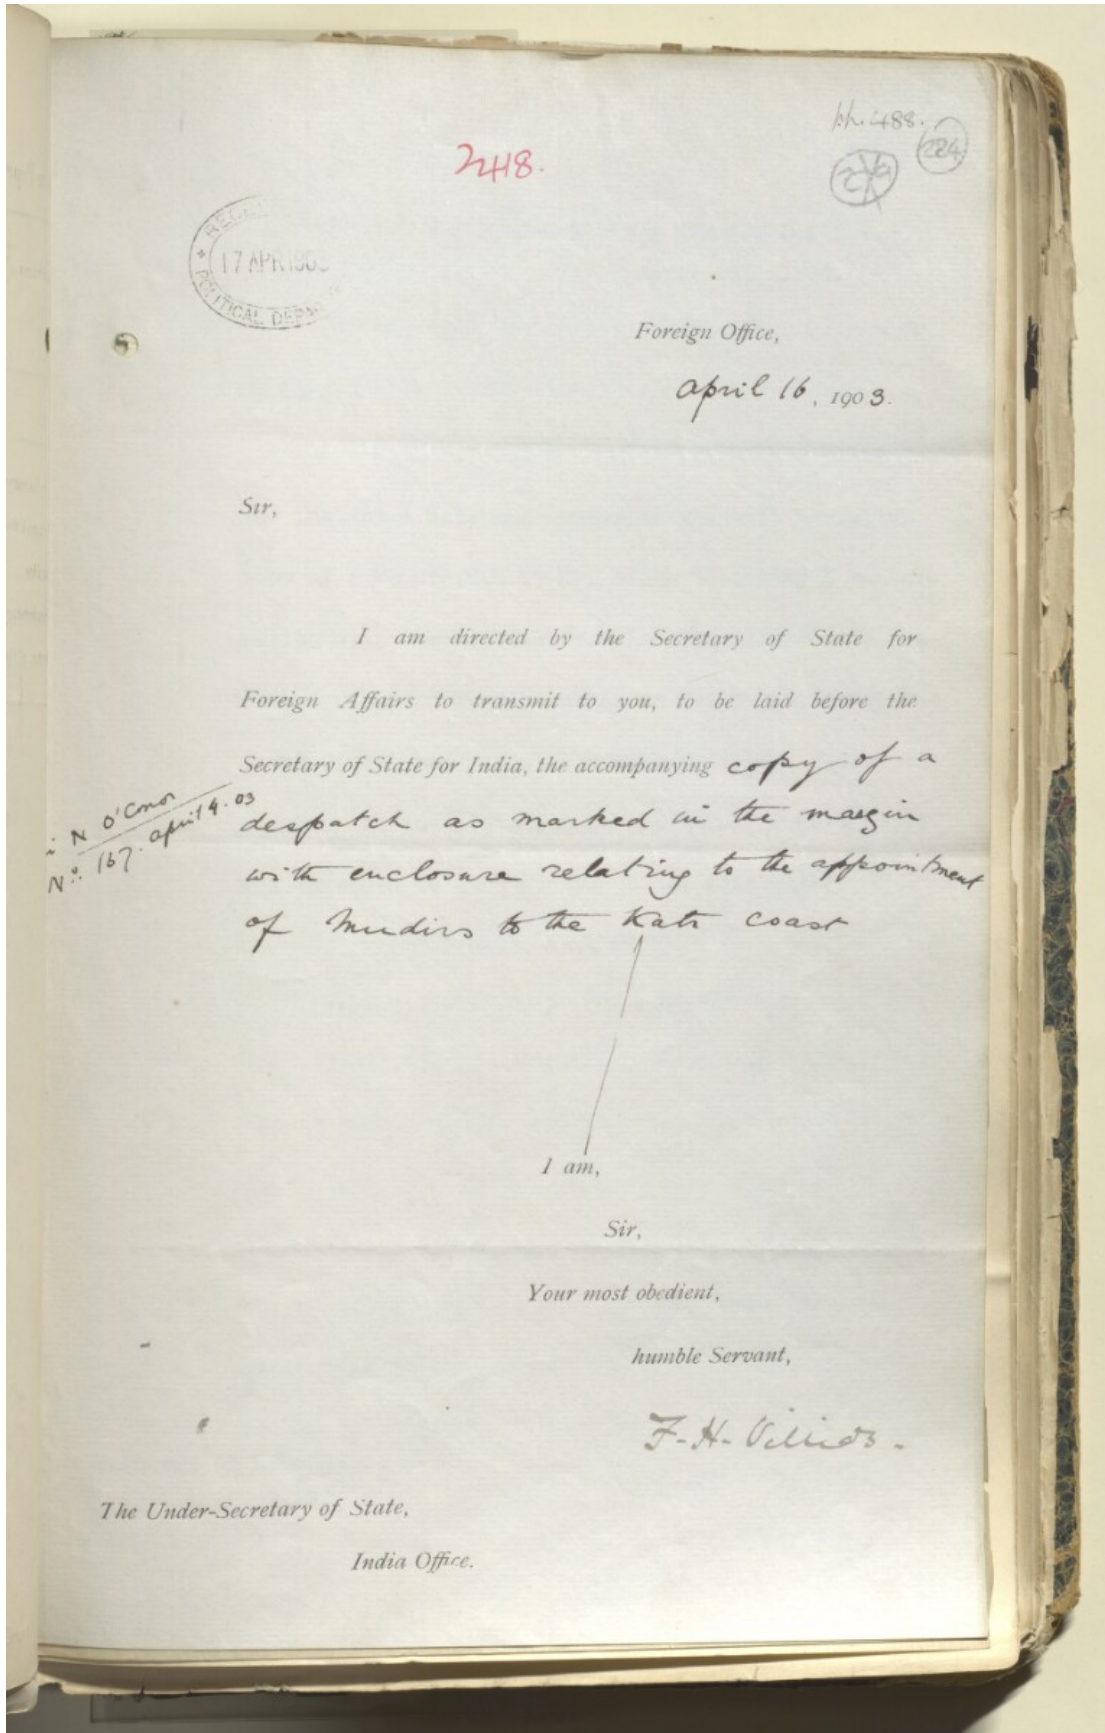 hh. 488.
284
2418.
17 APR 1903
POLITICAL DEPA
Foreign Office,
April 16, 1903.
Sir,
I am directed by the Secretary of State for
Foreign Affairs to transmit to you, to be laid before the
Secretary of State for India, the accompanying copy of a
despatch as marked in the margin
with enclosure relating to the appointment
of Mudirs to the Katr coast
N O'Conor
No: 167. April 4. 03
I am,
Sir,
Your most obedient,
humble Servant,
F. H. Villiers.
The Under-Secretary of State,
India Office.